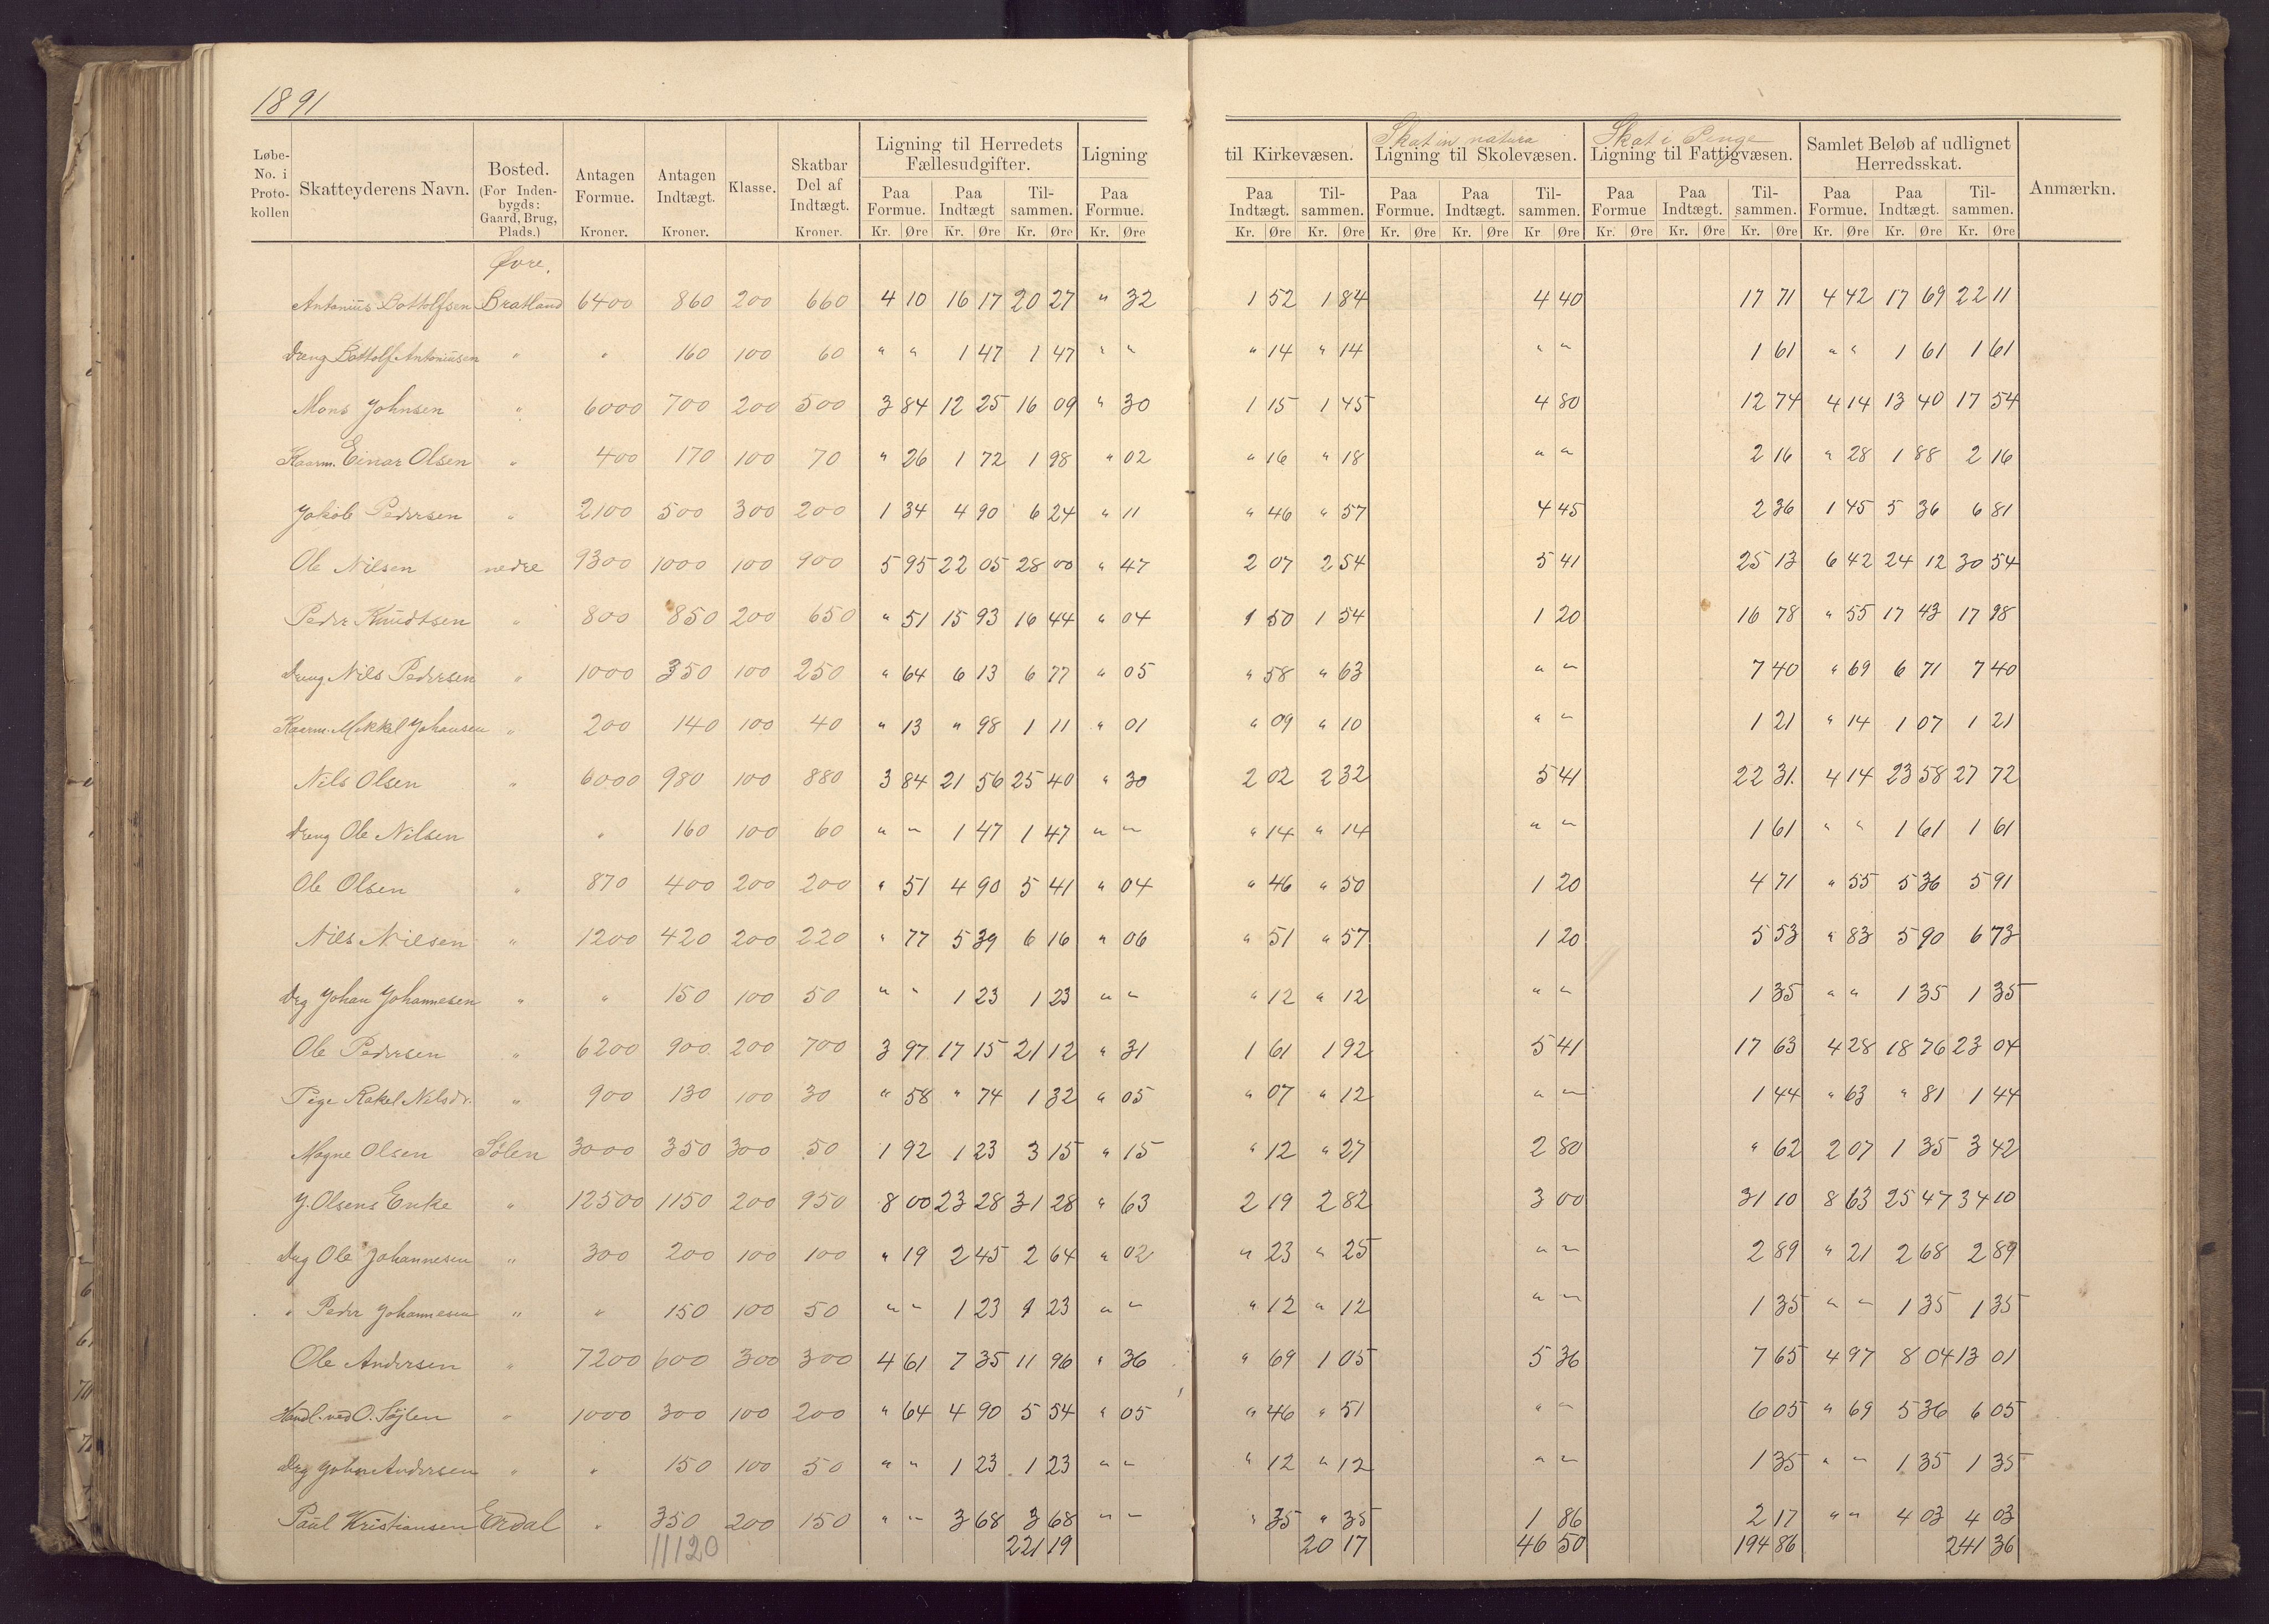 1891
Skat in natura
Skat i Penge
Løbe-No. i Proto-kollen | Skatteyderens Navn. | Bosted. (For Inden-bygds: Gaard, Brug, Plads.) | Antagen Formue. Kroner. | Antagen Indtægt. Kroner. | Klasse. | Skatbar Del af Indtægt. Kroner. | Ligning til Herredets Fællesudgifter. Paa Formue. Kr. Øre | Paa Indtægt Kr. Øre | Til-sammen. Kr. Øre | Ligning til Kirkevæsen. Paa Formue. Kr. Øre | Paa Indtægt. Kr. Øre | Til-sammen. Kr. Øre | Ligning til Skolevæsen. Paa Formue. Kr. Øre | Paa Indtægt. Kr. Øre | Til-sammen. Kr Øre | Ligning til Fattigvæsen. Paa Formue Kr. Øre | Paa Indtægt. Kr. Øre | Til-sammen. Kr. Øre | Samlet Beløb af udlignet Herredsskat. Paa Formue. Kr. Øre | Paa Indtægt. Kr. Øre | Til-sammen. Kr. Øre | Anmærkn.
Øvre.
Antonius Bottolfsen Bratland 6400 860 200 660 4 10 16 17 20 27 " 32 1 52 1 84 4 40 17 71 4 42 17 69 22 11
Dreng Bottolf Antoniusen " " 160 100 60 " " 1 47 1 47 " " " 14 " 14 " " 1 61 " " 1 61 1 61
Mons Johnsen " 6000 700 200 500 3 84 12 25 16 09 " 30 1 15 1 45 4 80 12 74 4 14 13 40 17 54
Kaarm. Einar Olsen " 400 170 100 70 " 26 1 72 1 98 " 02 " 16 " 18 " " 2 16 " 28 1 88 2 16
Jakob Pedersen " 2100 500 300 200 1 34 4 90 6 24 " 11 " 46 " 57 4 45 2 36 1 45 5 36 6 81
Ole Nilsen nedre 9300 1000 100 900 5 95 22 05 28 00 " 47 2 07 2 54 5 41 25 13 6 42 24 12 30 54
Peder Knudtsen " 800 850 200 650 " 51 15 93 16 44 " 04 1 50 1 54 1 20 16 78 " 55 17 43 17 98
Dreng Nils Pedersen " 1000 350 100 250 " 64 6 13 6 77 " 05 " 58 " 63 " " 7 40 " 69 6 71 7 40
Kaarm. Mikkel Johansen " 200 140 100 40 " 13 " 98 1 11 " 01 " 09 " 10 " " 1 21 " 14 1 07 1 21
Nils Olsen " 6000 980 100 880 3 84 21 56 25 40 " 30 2 02 2 32 5 41 22 31. 4 14 23 58 27 72
Dreng Ole Nilsen " 160 100 60 " " 1 47 1 47 " " " 14 " 14 " " 1 61 " " 1 61 1 61
Ole Olsen " 870 400 200 200 " 51 4 90 5 41 " 04 " 46 " 50 1 20 4 71 " 55 5 36 5 91
Nils Nilsen " 1200 420 200 220 " 77 5 39 6 16 " 06 " 51 " 57 1 20 5 53 " 83 5 90 6 73
Drg Johan Johannesen " " 150 100 50 " " 1 23 1 23 " " " 12 " 12 " " 1 35 " " 1 35 1 35
Ole Pedersen " 6200 900 200 700 3 97 17 15 21 12 " 31 1 61 1 92 5 41 17 63 4 28 18 76 23 04
Pige Rakel Nilsdr. " 900 130 100 30 " 58 " 74 1 32 " 05 " 07 " 12 " " 1 44 " 63 " 81 1 44
Magne Olsen Sølen 3000 350 300 50 1 92 1 23 3 15 " 15 " 12 " 27 2 80 " 62 2 07 1 35 3 42
J. Olsens Enke " 12500 1150 200 950 8 00 23 28 31 28 " 63 2 19 2 82 3 00 31 10 8 63 25 47 34 10
Drg Ole Johannesen " 300 200 100 100 " 19 2 45 2 64 " 02 " 23 " 25 " " 2 89 " 21 2 68 2 89
" Peder Johannesen " " 150 100 50 " " 1 23 1 23 " " " 12 " 12 " " 1 35 " " 1 35 1 35
Ole Andersen " 7200 600 300 300 4 61 7 35 11 96 " 36 " 69 1 05 5 36 7 65 4 97 8 04 13 01
Handl. ved O. Søjlen " 1000 300 100 200 " 64 4 90 5 54 " 05 " 46 " 51 " " 6 05 " 69 5 36 6 05
Drg John Andersen " " 150 100 50 " " 1 23 1 23 " " " 12 " 12 " " 1 35 " " 1 35 1 35
Paul Kristiansen Erdal " 350 200 150 " " 3 68 3 68 " " " 35 " 35 1 86 2 17 " " 4 03 4 03
11120 221 19 20 17 46 50 194 86 241 36